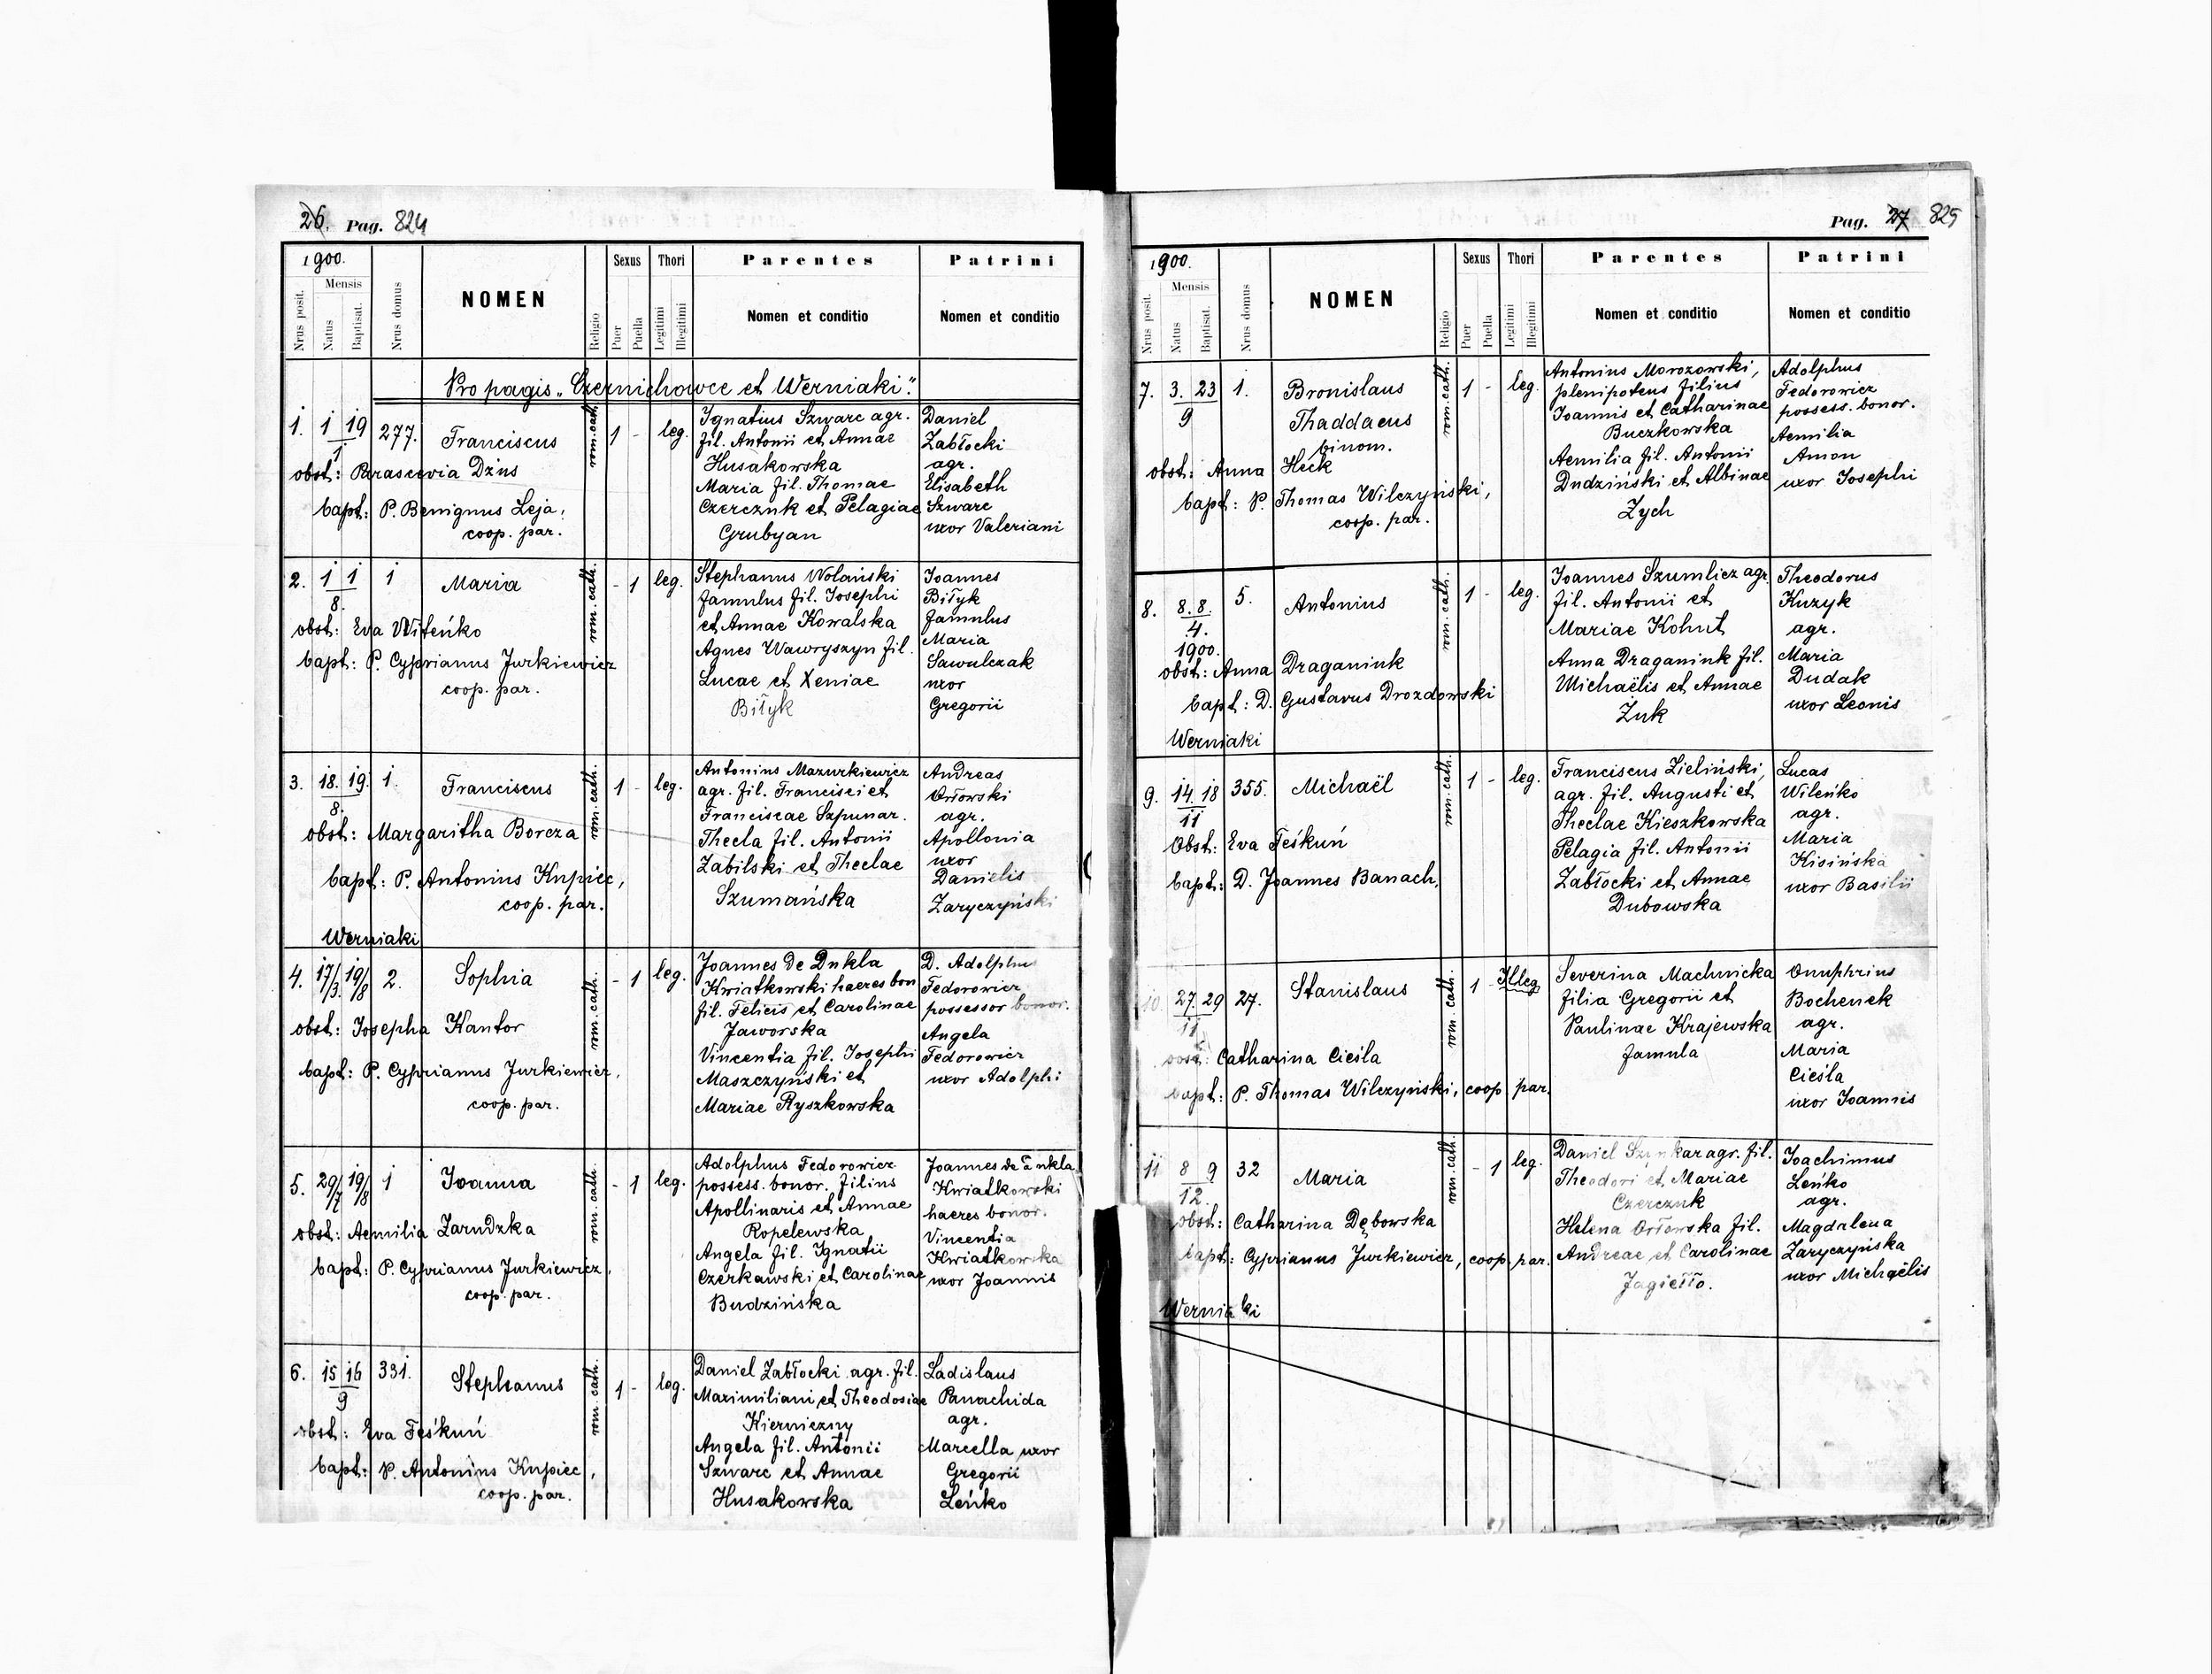 26. Pag. 824
1900.
Nrus posit.
Mensis
Natus
Baptisat.
Nrus domus
NOMEN
Religio
Sexus
Puer
Puella
Thori
Legitimi
Illegitimi
Parentes
Nomen et conditio
Patrini
Nomen et conditio
Pro pagis "Czernichowce et Werniaki".
1. 1 19 277. Franciscus rom. cath. 1 - leg.
1
obst: Parascevia Dzius
bapt: P. Benignus Leja,
coop. par.
Ignatius Szwarc agr.
fil. Antonii et Annae
Husakowska
Maria fil. Thomae
Czerczuk et Pelagiae
Grubyan
Daniel
Zabłocki
agr.
Elisabeth
Szwarc
uxor Valeriani
2. 1 1 1 Maria rom. cath. - 1 leg.
8.
obst: Eva Witeńko
bapt: P. Cyprianus Jurkiewicz
coop. par.
Stephanus Wolański
famulus fil. Josephi
et Annae Kowalska
Agnes Wawryszyn fil.
Lucae et Xeniae
Biłyk
Joannes
Biłyk
famulus
Maria
Sawulczak
uxor
Gregorii
3. 18. 19. 1. Franciscus rom. cath. 1 - leg.
8.
obst: Margaritha Borcza
bapt: P. Antonius Kupiec,
coop. par.
Werniaki
Antonius Mazurkiewicz
agr. fil. Francisci et
Franciscae Szpunar.
Thecla fil. Antonii
Zabilski et Theclae
Szumańska
Andreas
Orłowski
agr.
Apollonia
uxor
Danielis
Zaryczyński
4. 17/3. 19/8 2. Sophia rom. cath. - 1 leg.
obst: Josepha Kantor
bapt: P. Cyprianus Jurkiewicz,
coop. par.
Joannes de Dukla
Kwiatkowski haeres bon
fil. Felicis et Carolinae
Jaworska
Vincentia fil. Josephi
Maszczyński et
Mariae Ryszkowska
D. Adolphus
Fedorowicz
possessor bonor.
Angela
Fedorowicz
uxor Adolphi
5. 29/7 19/8 1 Joanna rom. cath. - 1 leg.
obst: Aemilia Zarudzka
bapt: P. Cyprianus Jurkiewicz,
coop. par.
Adolphus Fedorowicz
possess. bonor. filius
Apollinaris et Annae
Kopelewska
Angela fil. Ignatii
Czerkawski et Carolinae
Budzińska
Joannes de Dukla
Kwiatkowski
haeres bonor.
Vincentia
Kwiatkowska
uxor Joannis
6. 15 16 331. Stephanus rom. cath. 1 - leg.
9
obst: Eva Feśkuń
bapt: P. Antonius Kupiec,
coop. par.
Daniel Zabłocki agr. fil.
Maximiliani et Theodosiae
Kierniczny
Angela fil. Antonii
Szwarc et Annae
Husakowska
Ladislaus
Panachida
agr.
Marcella uxor
Gregorii
Leńko
Pag. 27 825
1900.
Nrus posit.
Mensis
Natus
Baptisat.
Nrus domus
NOMEN
Religio
Sexus
Puer
Puella
Thori
Legitimi
Illegitimi
Parentes
Nomen et conditio
Patrini
Nomen et conditio
7. 3. 23 1. Bronislaus rom. cath. 1 - leg.
9
Thaddaeus
binom.
obst: Anna Heck
bapt: P. Thomas Wilczyński,
coop. par.
Antonius Morozowski,
plenipotens filius
Joannis et Catharinae
Buczkowska
Aemilia fil. Antonii
Dudziński et Albinae
Zych
Adolphus
Fedorowicz
possess. bonor.
Aemilia
Amon
uxor Josephi
8. 8. 8. 5. Antonius rom. cath. 1 - leg.
4.
1900.
obst: Anna Draganiuk
bapt: D. Gustavus Drozdowski
Werniaki
Joannes Szumlicz agr.
fil. Antonii et
Mariae Kohut
Anna Draganiuk fil.
Michaëlis et Annae
Żuk
Theodorus
Kuzyk
agr.
Maria
Dudak
uxor Leonis
9. 14. 18 355. Michaël rom. cath. 1 - leg.
11
Obst: Eva Feśkuń
bapt: D. Joannes Banach,
Franciscus Zieliński,
agr. fil. Augusti et
Theclae Kieszkowska
Pelagia fil. Antonii
Zabłocki et Annae
Dubowska
Lucas
Wileńko
agr.
Maria
Kisińska
uxor Basilii
10. 27. 29 27. Stanislaus rom. cath. 1 - Illeg.
11
obst: Catharina Cieśla
bapt: P. Thomas Wilczyński, coop. par.
Severina Machnicka
filia Gregorii et
Paulinae Krajewska
famula
Onuphrius
Bochenek
agr.
Maria
Cieśla
uxor Joannis
11 8 9 32 Maria rom. cath. - 1 leg.
12.
obst: Catharina Dębowska
bapt: Cyprianus Jurkiewicz, coop. par.
Werniaki
Daniel Szynkar agr. fil.
Theodori et Mariae
Czerczuk
Helena Orłowska fil.
Andreae et Carolinae
Jagiełło.
Joachimus
Leńko
agr.
Magdalena
Zaryczyńska
uxor Michaëlis